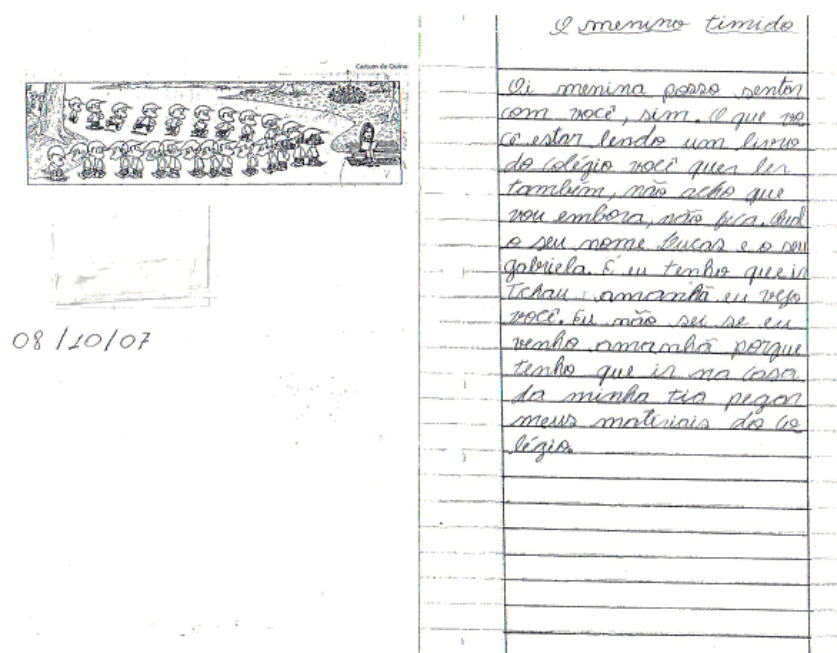 Cartum de Quino
08/10/07
O menino timido
Oi menina posso sentar
com você, sim. O que vo
cê estar lendo um livro
do colégio você quer ler
também, não acho que
vou embora, não fica. Qual
o seu nome Lucas e o seu
gabriela. E eu tenho que ir
Tchau amanhã eu vejo
você. Eu não sei se eu
venho amanhã porque
tenho que ir na casa
da minha tia pegar
meus matiriais do co
légio.